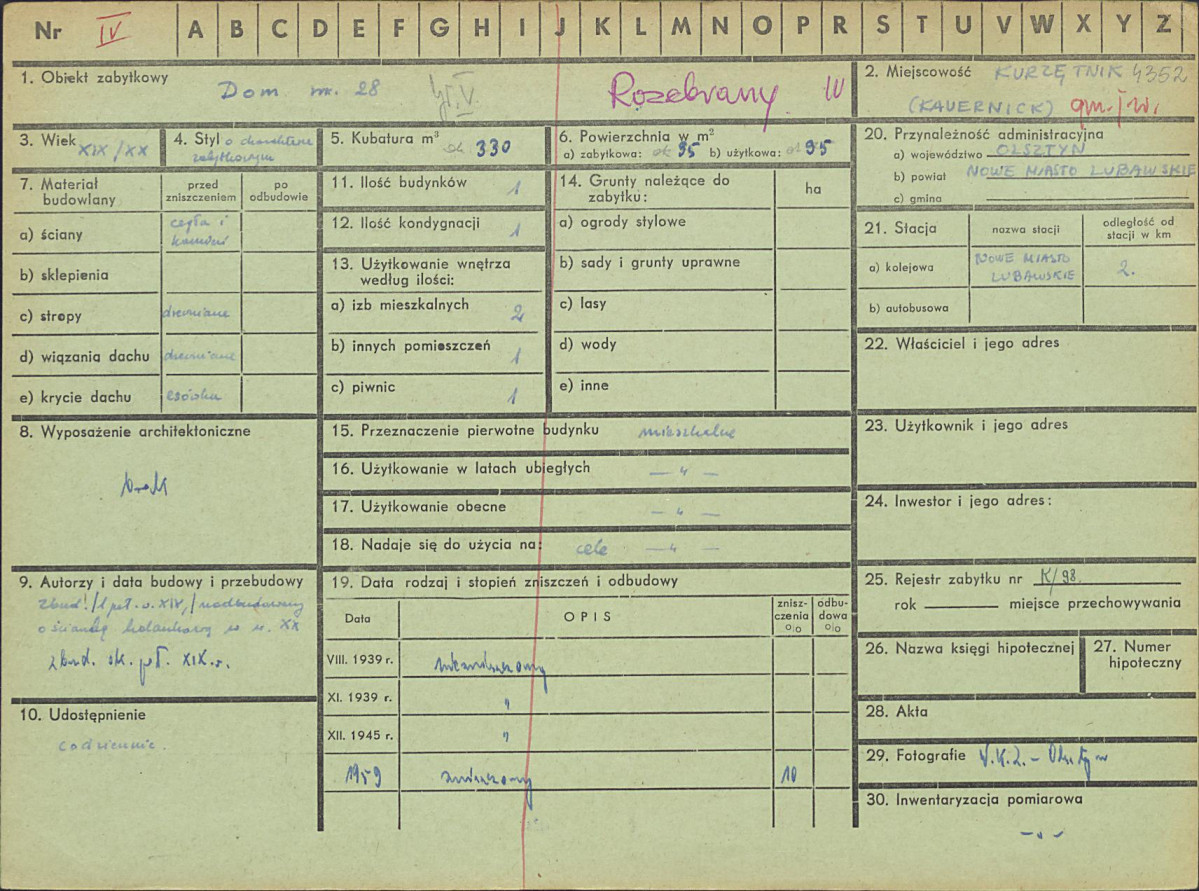 Nr IV A B C D E F G H I J K L M N O P R S T U V W X Y Z
1. Obiekt zabytkowy Dom nr. 28 Rozebrany IV
2. Miejscowość KURZĘTNIK 4352
(KAUERNICK) gm. j w.
3. Wiek XIX/XX
4. Styl o charakterze
zabytkowym
5. Kubatura m³ ok 330
6. Powierzchnia w m²
a) zabytkowa: ok 95 b) użytkowa: ok 95
7. Materiał
budowlany
przed
zniszczeniem
po
odbudowie
a) ściany cegła i
kamień
b) sklepienia
c) stropy drewniane
d) wiązania dachu drewniane
e) krycie dachu esówka
8. Wyposażenie architektoniczne
brak
9. Autorzy i data budowy i przebudowy
zbud. 1 poł. w. XIX, nadbudowany
o ściankę kolankową w w. XX
zbud. ok. poł. XIX w.
10. Udostępnienie
codziennie.
11. Ilość budynków 1
12. Ilość kondygnacji 1
13. Użytkowanie wnętrza
według ilości:
a) izb mieszkalnych 2
b) innych pomieszczeń 1
c) piwnic 1
14. Grunty należące do
zabytku:
ha
a) ogrody stylowe
b) sady i grunty uprawne
c) lasy
d) wody
e) inne
15. Przeznaczenie pierwotne budynku mieszkalne
16. Użytkowanie w latach ubiegłych — " —
17. Użytkowanie obecne — " —
18. Nadaje się do użycia na: cele — " —
19. Data rodzaj i stopień zniszczeń i odbudowy
Data OPIS
znisz-
czenia
%
odbu-
dowa
%
VIII. 1939 r. niezniszczony
XI. 1939 r. "
XII. 1945 r. "
1959 zniszczony 10
20. Przynależność administracyjna
a) województwo OLSZTYN
b) powiat NOWE MIASTO LUBAWSKIE
c) gmina
21. Stacja
nazwa stacji
odległość od
stacji w km
a) kolejowa NOWE MIASTO
LUBAWSKIE 2.
b) autobusowa
22. Właściciel i jego adres
23. Użytkownik i jego adres
24. Inwestor i jego adres:
25. Rejestr zabytku nr K/98
rok miejsce przechowywania
26. Nazwa księgi hipotecznej
27. Numer
hipoteczny
28. Akta
29. Fotografie W.K.Z. - Olsztyn
30. Inwentaryzacja pomiarowa
- " -